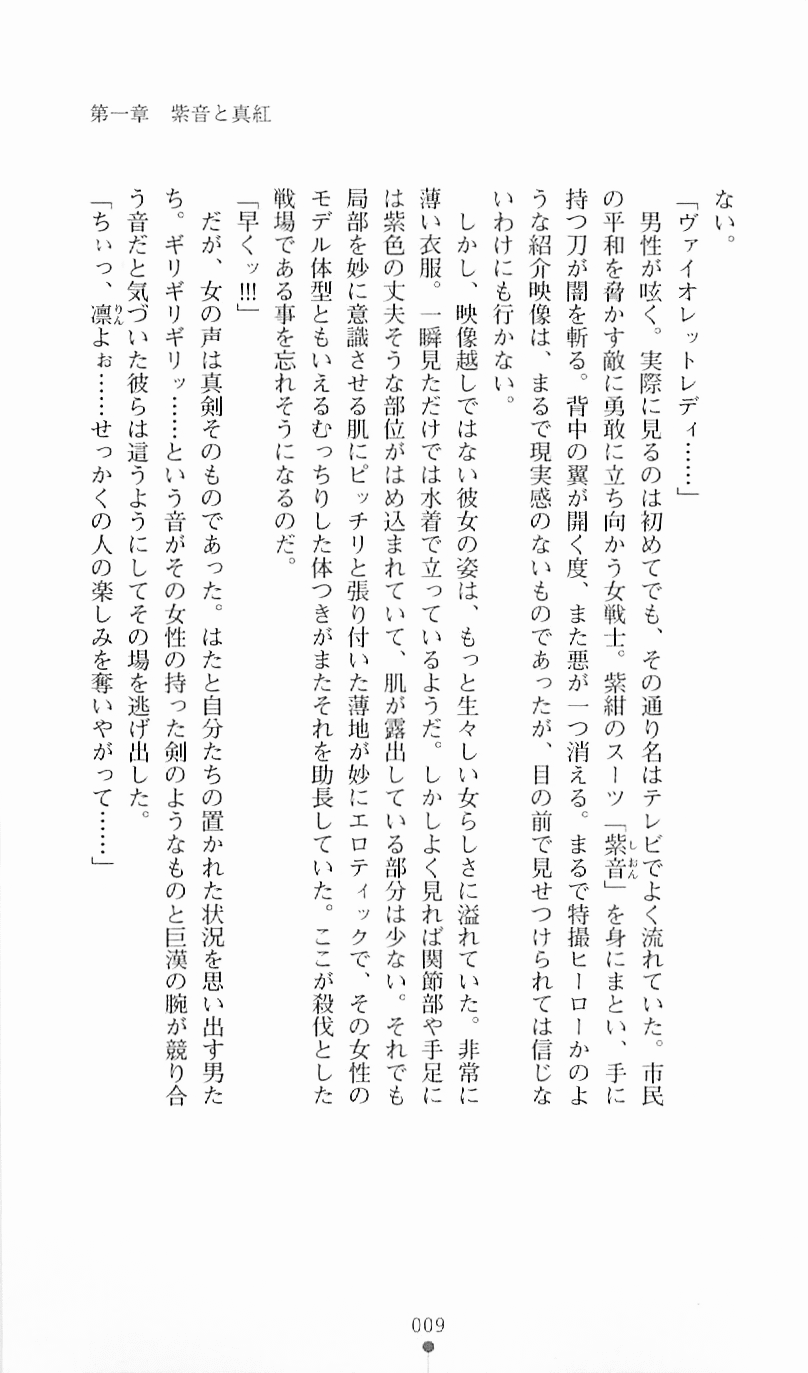 第一章　紫音と真紅
ない。
「ヴァイオレットレディ……」
　男性が呟く。実際に見るのは初めてでも、その通り名はテレビでよく流れていた。市民
の平和を脅かす敵に勇敢に立ち向かう女戦士。紫紺のスーツ「紫音」を身にまとい、手に
持つ刀が闇を斬る。背中の翼が開く度、また悪が一つ消える。まるで特撮ヒーローかのよ
うな紹介映像は、まるで現実感のないものであったが、目の前で見せつけられては信じな
いわけにも行かない。
　しかし、映像越しではない彼女の姿は、もっと生々しい女らしさに溢れていた。非常に
薄い衣服。一瞬見ただけでは水着で立っているようだ。しかしよく見れば関節部や手足に
は紫色の丈夫そうな部位がはめ込まれていて、肌が露出している部分は少ない。それでも
局部を妙に意識させる肌にピッチリと張り付いた薄地が妙にエロティックで、その女性の
モデル体型ともいえるむっちりした体つきがまたそれを助長していた。ここが殺伐とした
戦場である事を忘れそうになるのだ。
「早くッ!!!」
　だが、女の声は真剣そのものであった。はたと自分たちの置かれた状況を思い出す男た
ち。ギリギリギリッ……という音がその女性の持った剣のようなものと巨漢の腕が競り合
う音だと気づいた彼らは這うようにしてその場を逃げ出した。
「ちぃっ、凛よぉ……せっかくの人の楽しみを奪いやがって……」
009